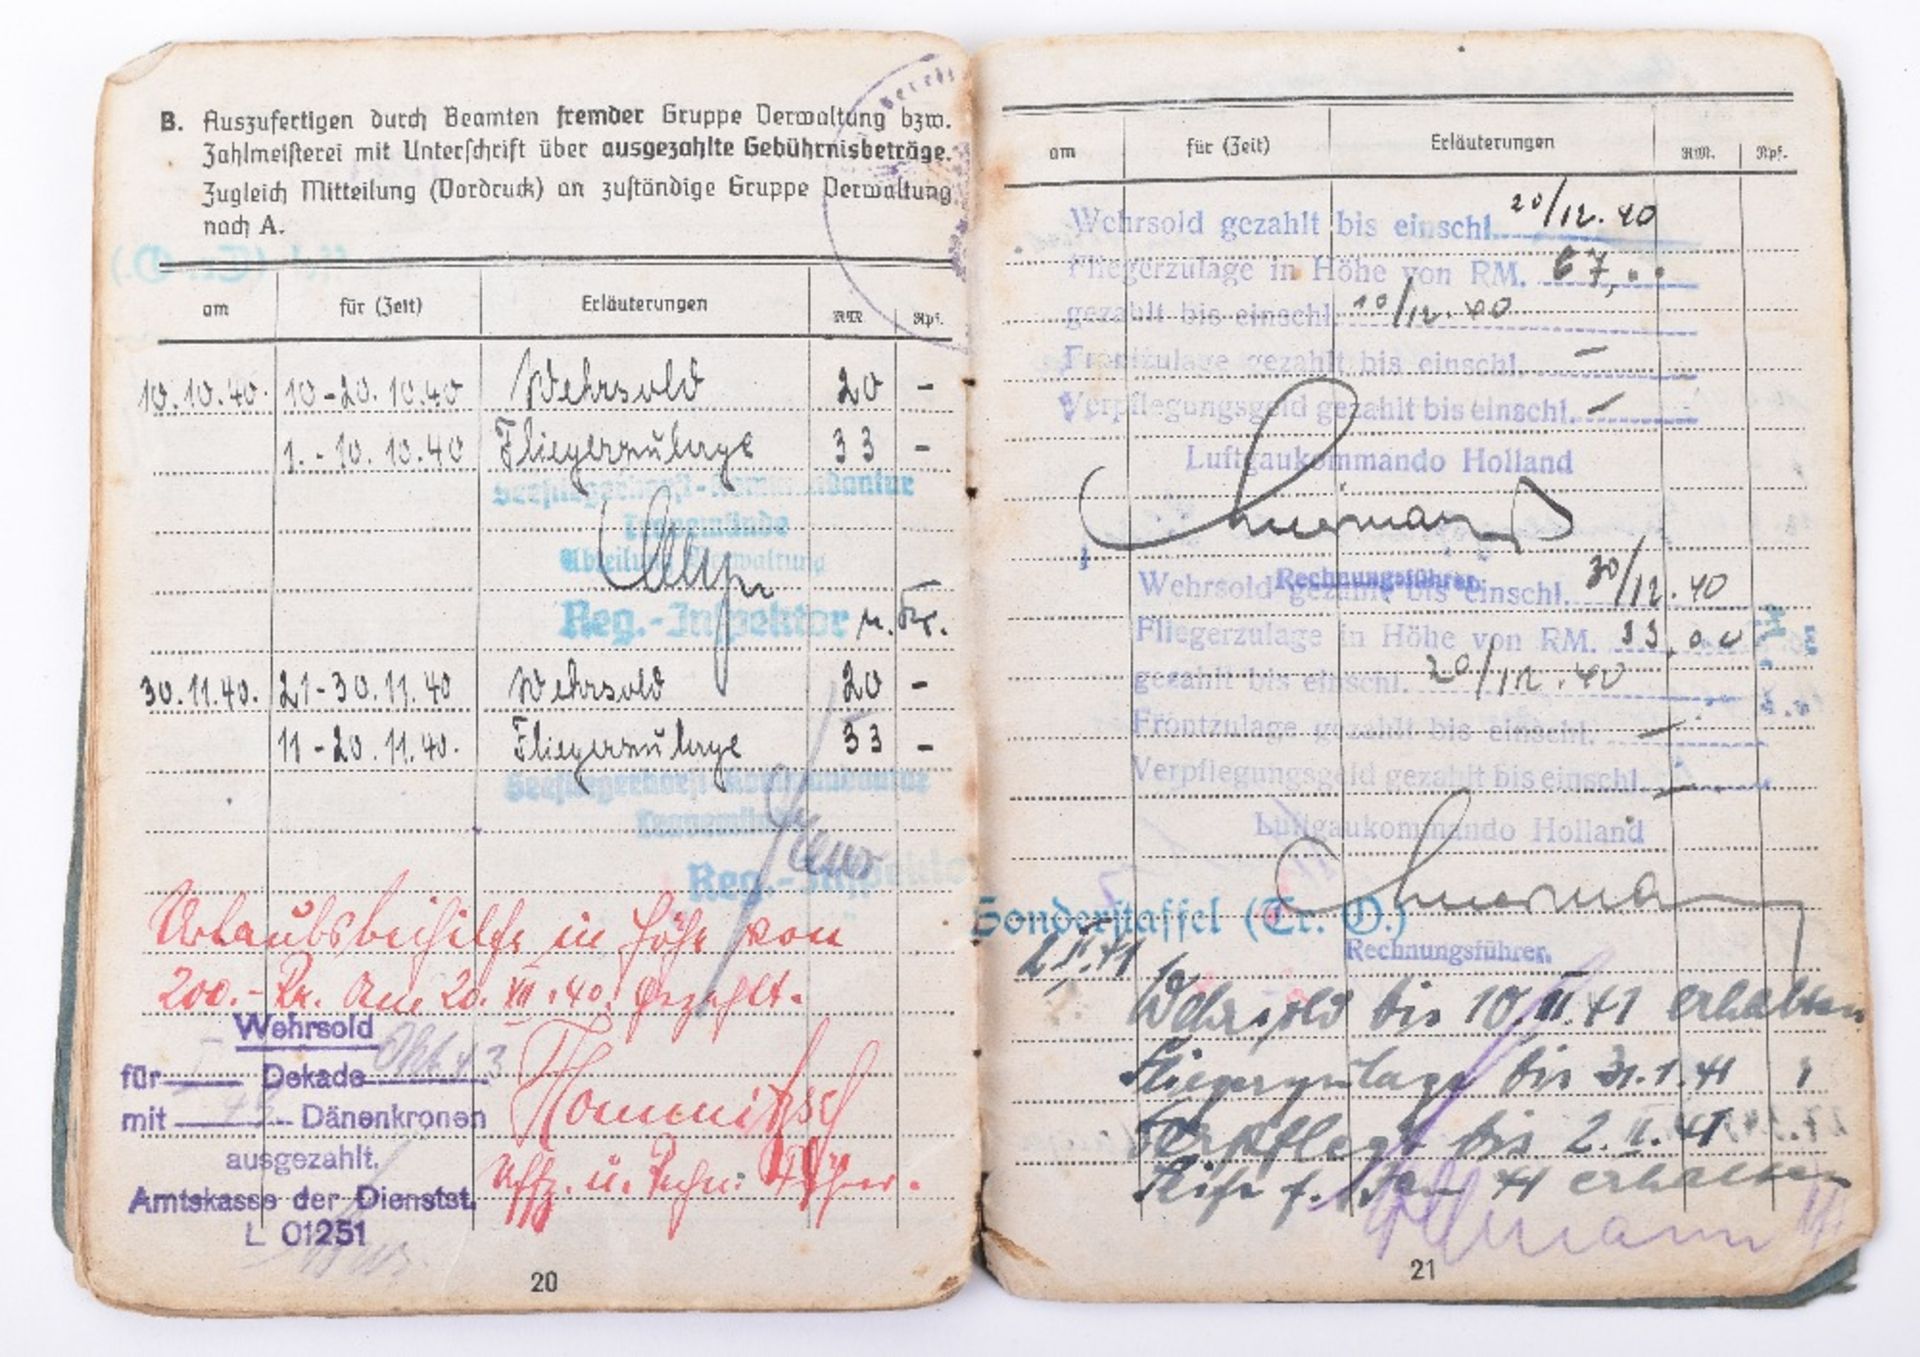 B. Auszufertigen durch Beamten fremder Gruppe Verwaltung bzw.
Zahlmeisterei mit Unterschrift über ausgezahlte Gebührnisbeträge.
Zugleich Mitteilung (Vordruck) an zuständige Gruppe Verwaltung
nach A.
am für (Zeit) Erläuterungen RM Rpf.
10.10.40. 10-20.10.40 Wehrsold 20 -
1.-10.10.40 Fliegerzulage 33 -
Seefliegerhorst-Kommandantur
Abteilung Verwaltung
Reg.-Inspektor
30.11.40. 21-30.11.40 Wehrsold 20 -
11-20.11.40. Fliegerzulage 33 -
Seefliegerhorst-Kommandantur
Reg.-Inspektor
Urlaubsbeihilfe in Höhe von
200.- am 20. XII.40. gezahlt.
Wehrsold
für Dekade Okt 43
mit Dänenkronen
ausgezahlt.
Amtskasse der Dienstst.
L 01251
Uffz. u.
20
am für (Zeit) Erläuterungen RM. Rpf.
Wehrsold gezahlt bis einschl. 20/12.40
Fliegerzulage in Höhe von RM. 67,..
gezahlt bis einschl. 10/12.40
Frontzulage gezahlt bis einschl. -
Verpflegungsgeld gezahlt bis einschl. -
Luftgaukommando Holland
Rechnungsführer.
Wehrsold gezahlt bis einschl. 30/12.40
Fliegerzulage in Höhe von RM. 33,00
gezahlt bis einschl. 20/12.40
Frontzulage gezahlt bis einschl. -
Verpflegungsgeld gezahlt bis einschl. -
Luftgaukommando Holland
Sonderstaffel (Tr. O.)
Rechnungsführer.
2.II.41
Wehrsold bis 10.II.41 erhalten
Fliegerzulage bis 31.1.41 "
Verpflegt bis 2.II.41
41 erhalten
21